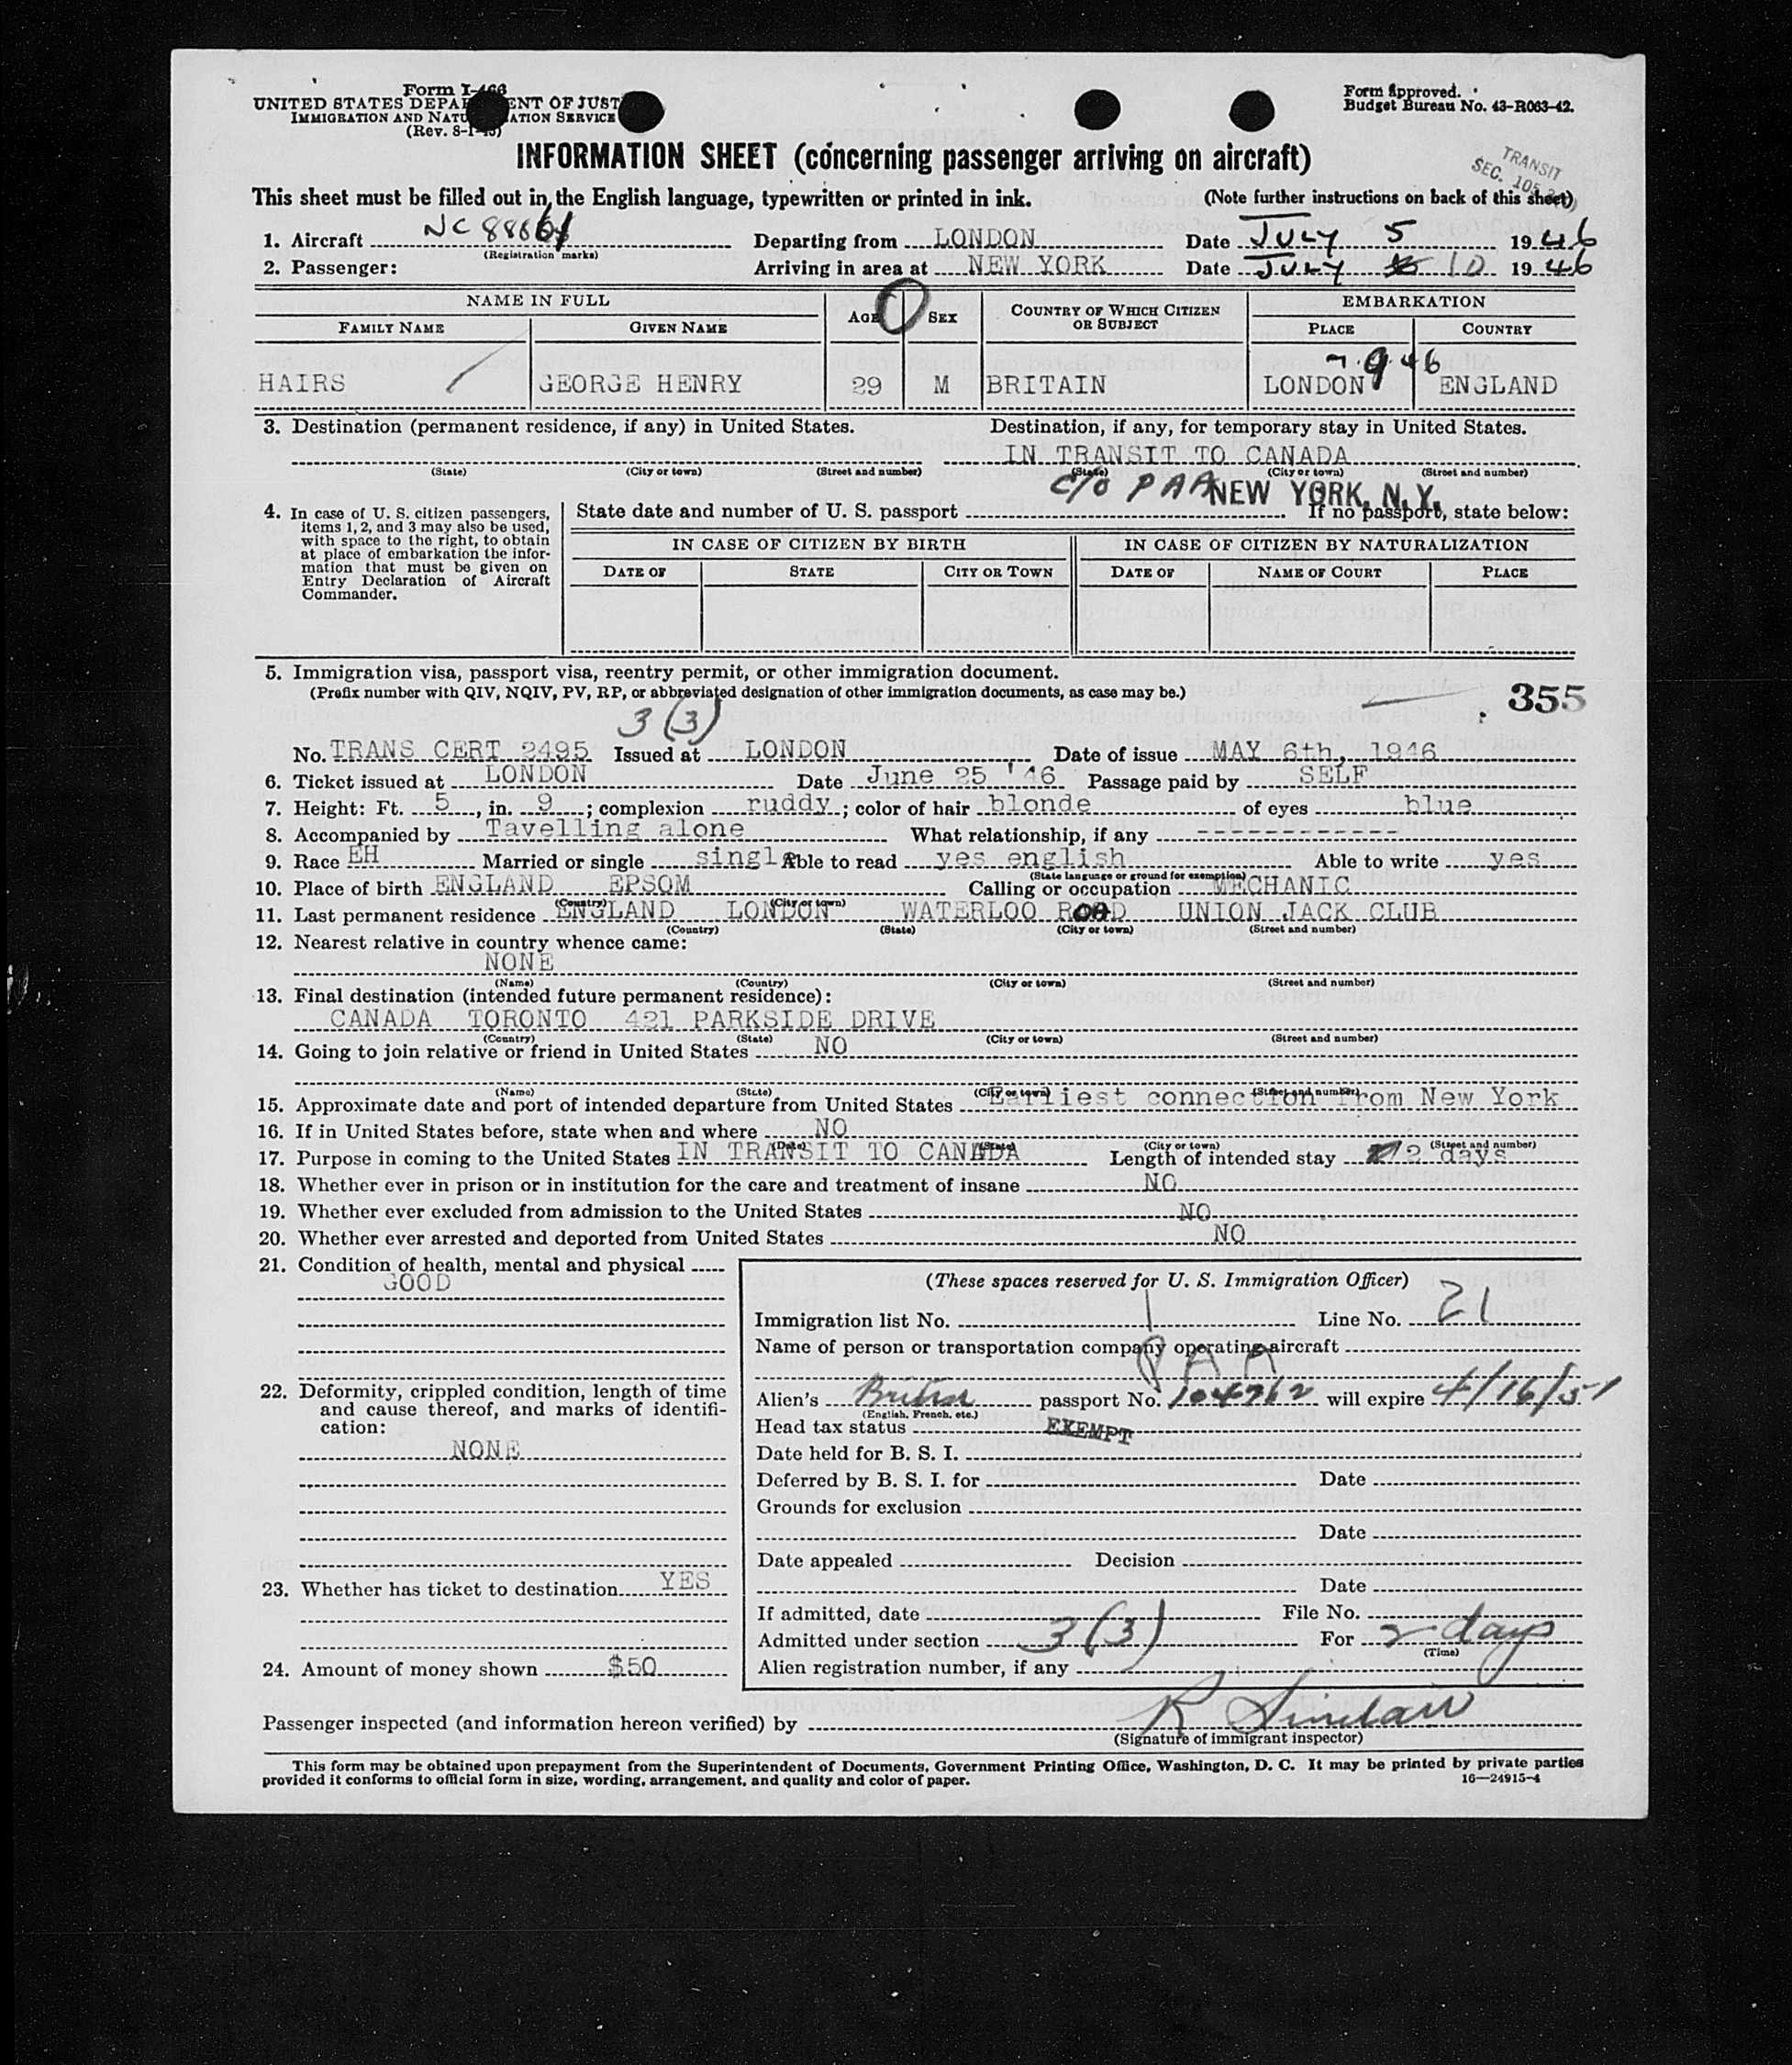 Form I-466
UNITED STATES DEPARTMENT OF JUST
IMMIGRATION AND NATURALIZATION SERVICE
(Rev. 8-1-45)
Form Approved.
Budget Bureau No. 43-R063-42.
INFORMATION SHEET (concerning passenger arriving on aircraft)
TRANSIT
SEC. 105.3
This sheet must be filled out in the English language, typewritten or printed in ink. (Note further instructions on back of this sheet)
1. Aircraft NC 88861 Departing from LONDON Date JULY 5 1946
(Registration marks)
2. Passenger: Arriving in area at NEW YORK Date JULY 10 1946
NAME IN FULL AGE SEX COUNTRY OF WHICH CITIZEN OR SUBJECT EMBARKATION
FAMILY NAME GIVEN NAME PLACE COUNTRY
7.9.46
HAIRS GEORGE HENRY 29 M BRITAIN LONDON ENGLAND
3. Destination (permanent residence, if any) in United States. Destination, if any, for temporary stay in United States.
IN TRANSIT TO CANADA
(State) (City or town) (Street and number) (State) (City or town) (Street and number)
c/o PAA NEW YORK, N. Y.
4. In case of U. S. citizen passengers, items 1, 2, and 3 may also be used, with space to the right, to obtain at place of embarkation the information that must be given on Entry Declaration of Aircraft Commander.
State date and number of U. S. passport If no passport, state below:
IN CASE OF CITIZEN BY BIRTH IN CASE OF CITIZEN BY NATURALIZATION
DATE OF STATE CITY OR TOWN DATE OF NAME OF COURT PLACE
5. Immigration visa, passport visa, reentry permit, or other immigration document.
(Prefix number with QIV, NQIV, PV, RP, or abbreviated designation of other immigration documents, as case may be.)
355
3 (3)
No. TRANS CERT 2495 Issued at LONDON Date of issue MAY 6th, 1946
6. Ticket issued at LONDON Date June 25 '46 Passage paid by SELF
7. Height: Ft. 5, in. 9; complexion ruddy; color of hair blonde of eyes blue
8. Accompanied by Tavelling alone What relationship, if any ------------
9. Race EH Married or single single Able to read yes english Able to write yes
(State language or ground for exemption)
10. Place of birth ENGLAND EPSOM Calling or occupation MECHANIC
(Country) (City or town)
11. Last permanent residence ENGLAND LONDON WATERLOO ROAD UNION JACK CLUB
(Country) (State) (City or town) (Street and number)
12. Nearest relative in country whence came:
NONE
(Name) (Country) (City or town) (Street and number)
13. Final destination (intended future permanent residence):
CANADA TORONTO 421 PARKSIDE DRIVE
(Country) (State) (City or town) (Street and number)
14. Going to join relative or friend in United States NO
(Name) (State) (City or town) (Street and number)
15. Approximate date and port of intended departure from United States Earliest connection from New York
16. If in United States before, state when and where NO
(Date) (State) (City or town) (Street and number)
17. Purpose in coming to the United States IN TRANSIT TO CANADA Length of intended stay 2 days
18. Whether ever in prison or in institution for the care and treatment of insane NO
19. Whether ever excluded from admission to the United States NO
20. Whether ever arrested and deported from United States NO
21. Condition of health, mental and physical
GOOD
22. Deformity, crippled condition, length of time and cause thereof, and marks of identification:
NONE
23. Whether has ticket to destination YES
24. Amount of money shown $50
(These spaces reserved for U. S. Immigration Officer)
Immigration list No. 1 Line No. 21
Name of person or transportation company operating aircraft
PAA
Alien's British passport No. 104762 will expire 4/16/51
(English, French, etc.)
Head tax status EXEMPT
Date held for B. S. I.
Deferred by B. S. I. for Date
Grounds for exclusion
Date
Date appealed Decision
Date
If admitted, date File No.
Admitted under section 3(3) For 2 days
(Time)
Alien registration number, if any
Passenger inspected (and information hereon verified) by R Sinclair
(Signature of immigrant inspector)
This form may be obtained upon prepayment from the Superintendent of Documents, Government Printing Office, Washington, D. C. It may be printed by private parties
provided it conforms to official form in size, wording, arrangement, and quality and color of paper. 16—24915-4